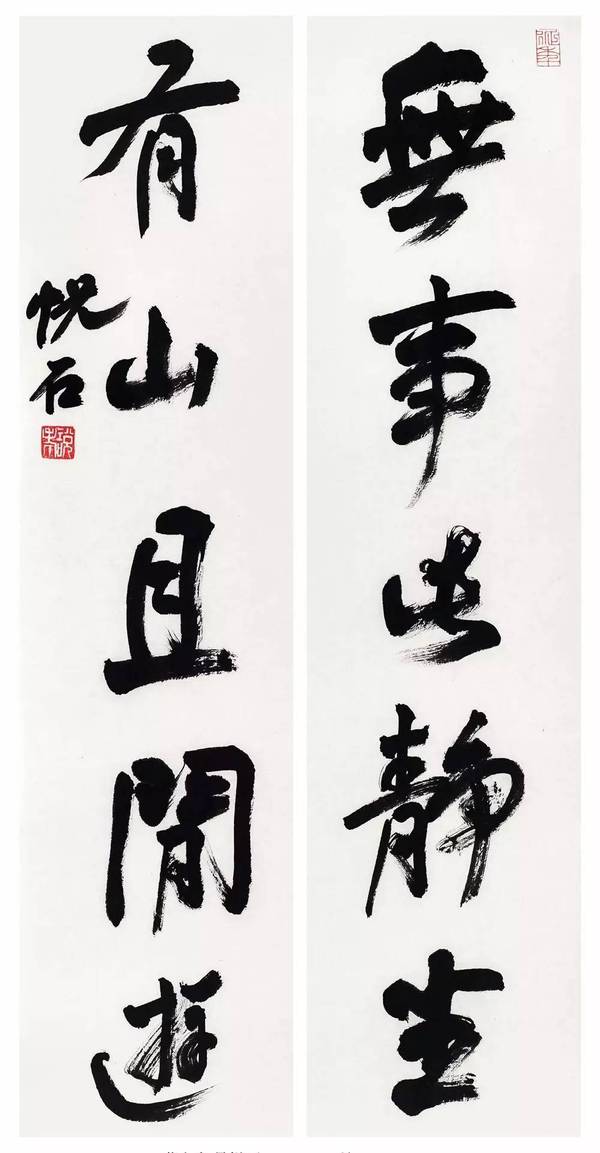 無事此静坐
有山且閒遊
悦石